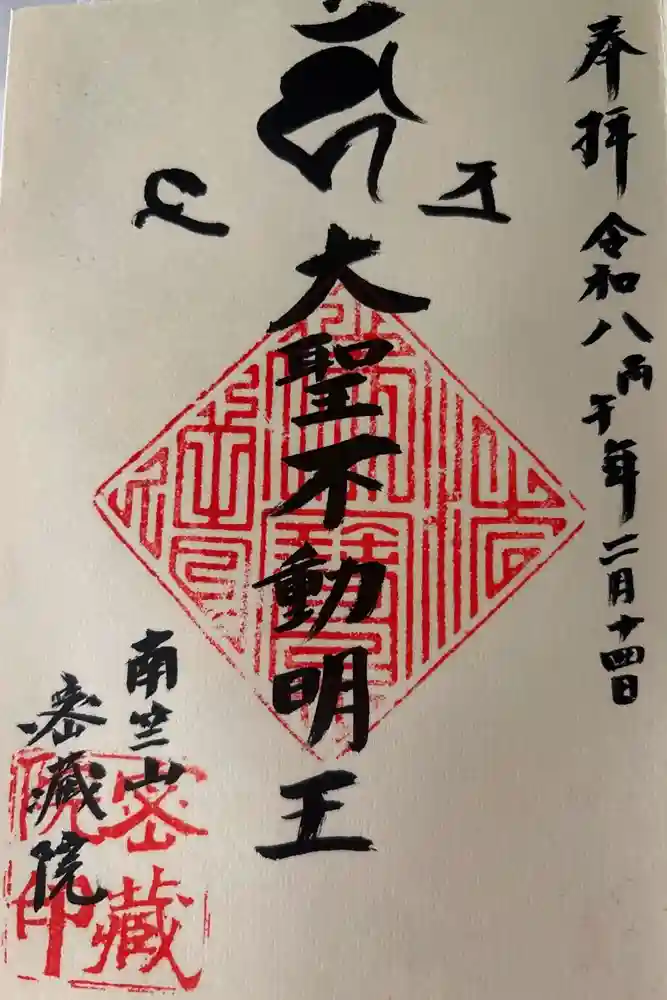 奉拝 令和八丙午年二月十四日
大聖不動明王
南竺山
密蔵院
密蔵院印